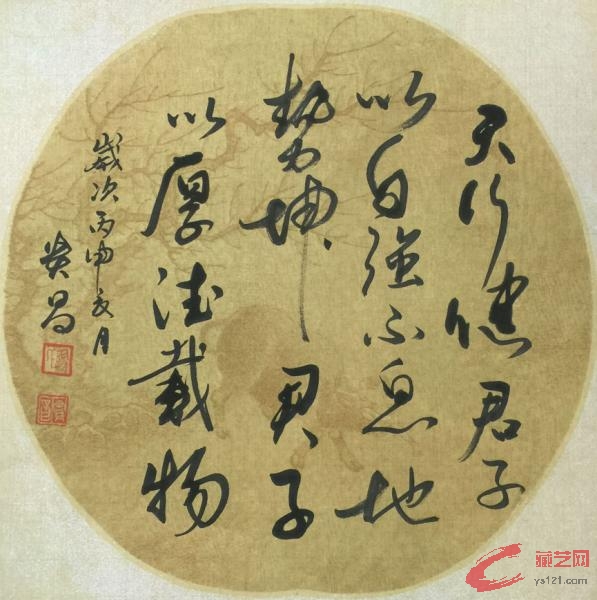 天行健君子
以自強不息地
勢坤君子
以厚德載物
歲次丙申月
貴昌
藏艺网
ys121.com